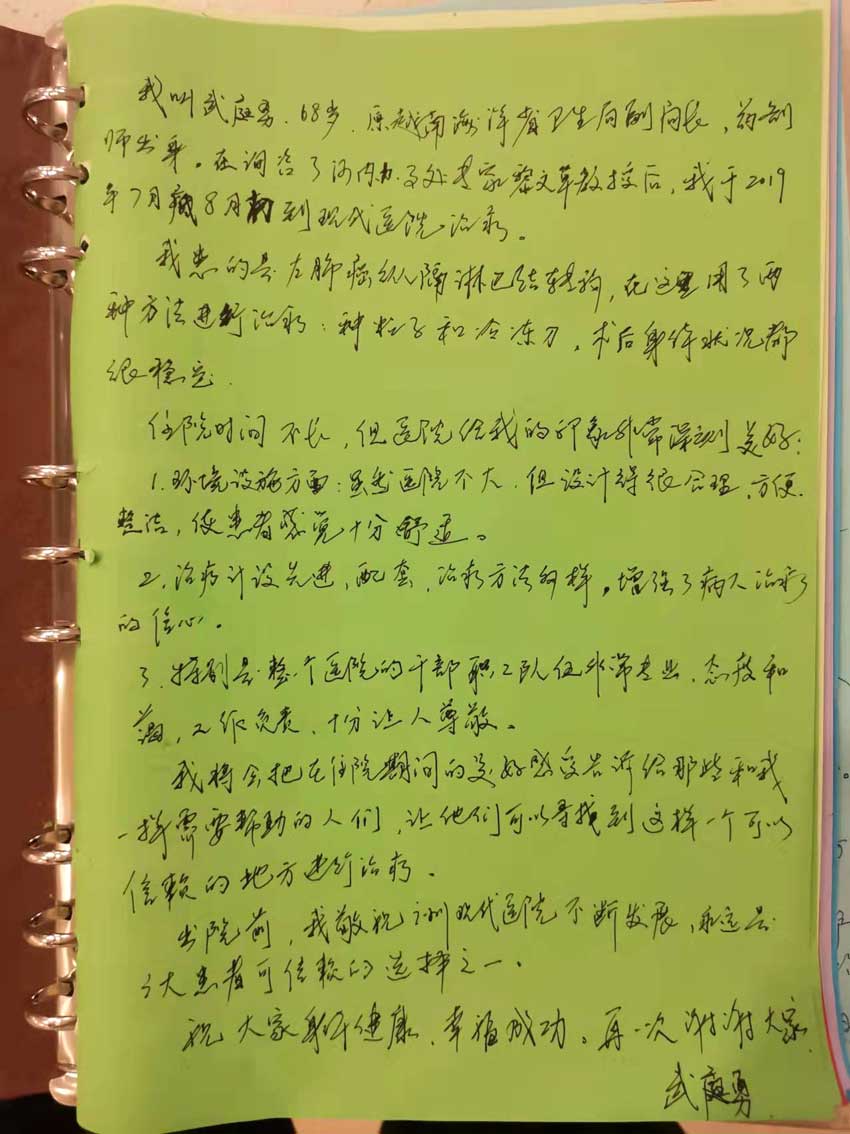 我叫武庭勇、68岁、原越南海洋省卫生局副局长，药剂
师出身。在询咨了河内办事处专家黎文草教授后，我于2019
年7月 8月 到现代医院治疗。
我患的是左肺癌纵隔淋巴结转移，在这里用了两
种方法进行治疗：种粒子和冷冻刀，术后身体状况都
很稳定.
住院时间不长，但医院给我的印象非常深刻美好：
1.环境设施方面：虽然医院不大，但设计得很合理、方便、
整洁，使患者感觉十分舒适。
2.治疗计设先进，配套，治疗方法多样，增强了病人治疗
的信心。
3.特别是整个医院的干部职工队伍非常专业、态度和
蔼，工作负责、十分让人尊敬。
我将会把在住院期间的美好感受告诉给那些和我
一样需要帮助的人们，让他们可以寻找到这样一个可以
信赖的地方进行治疗。
出院前，我敬祝 现代医院不断发展，永远是
广大患者可信赖的选择之一。
祝大家身体健康、幸福成功。再一次谢谢大家
武庭勇